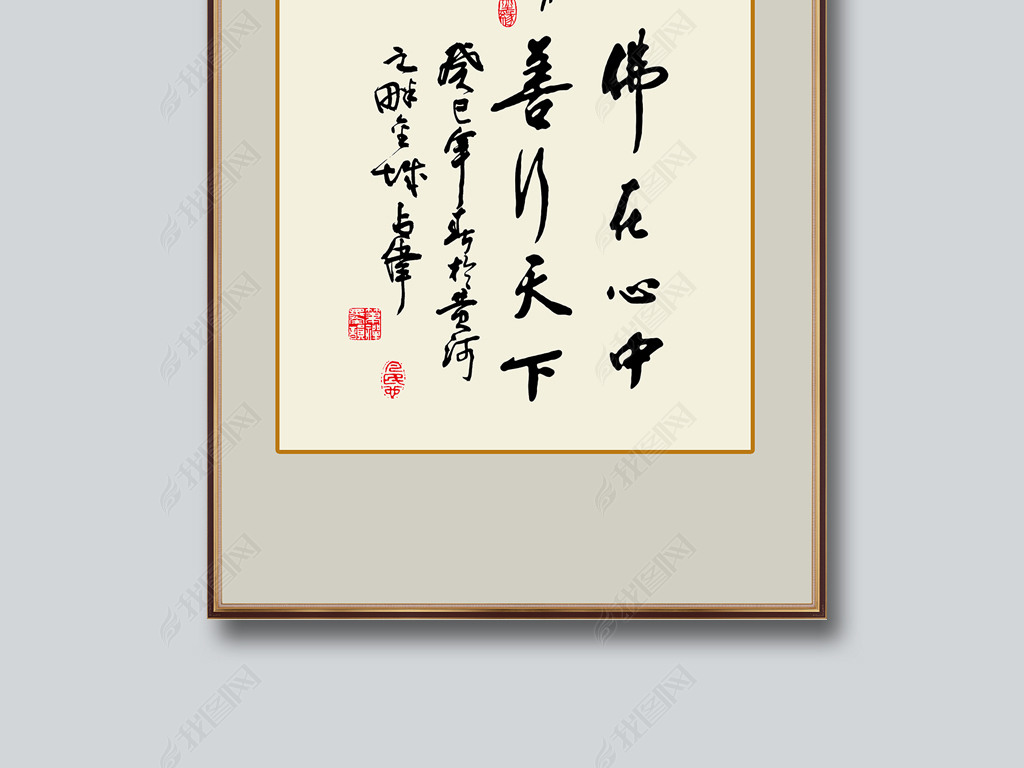 佛在心中
善行天下
癸巳年春於黄河
之畔金城占偉
找图网